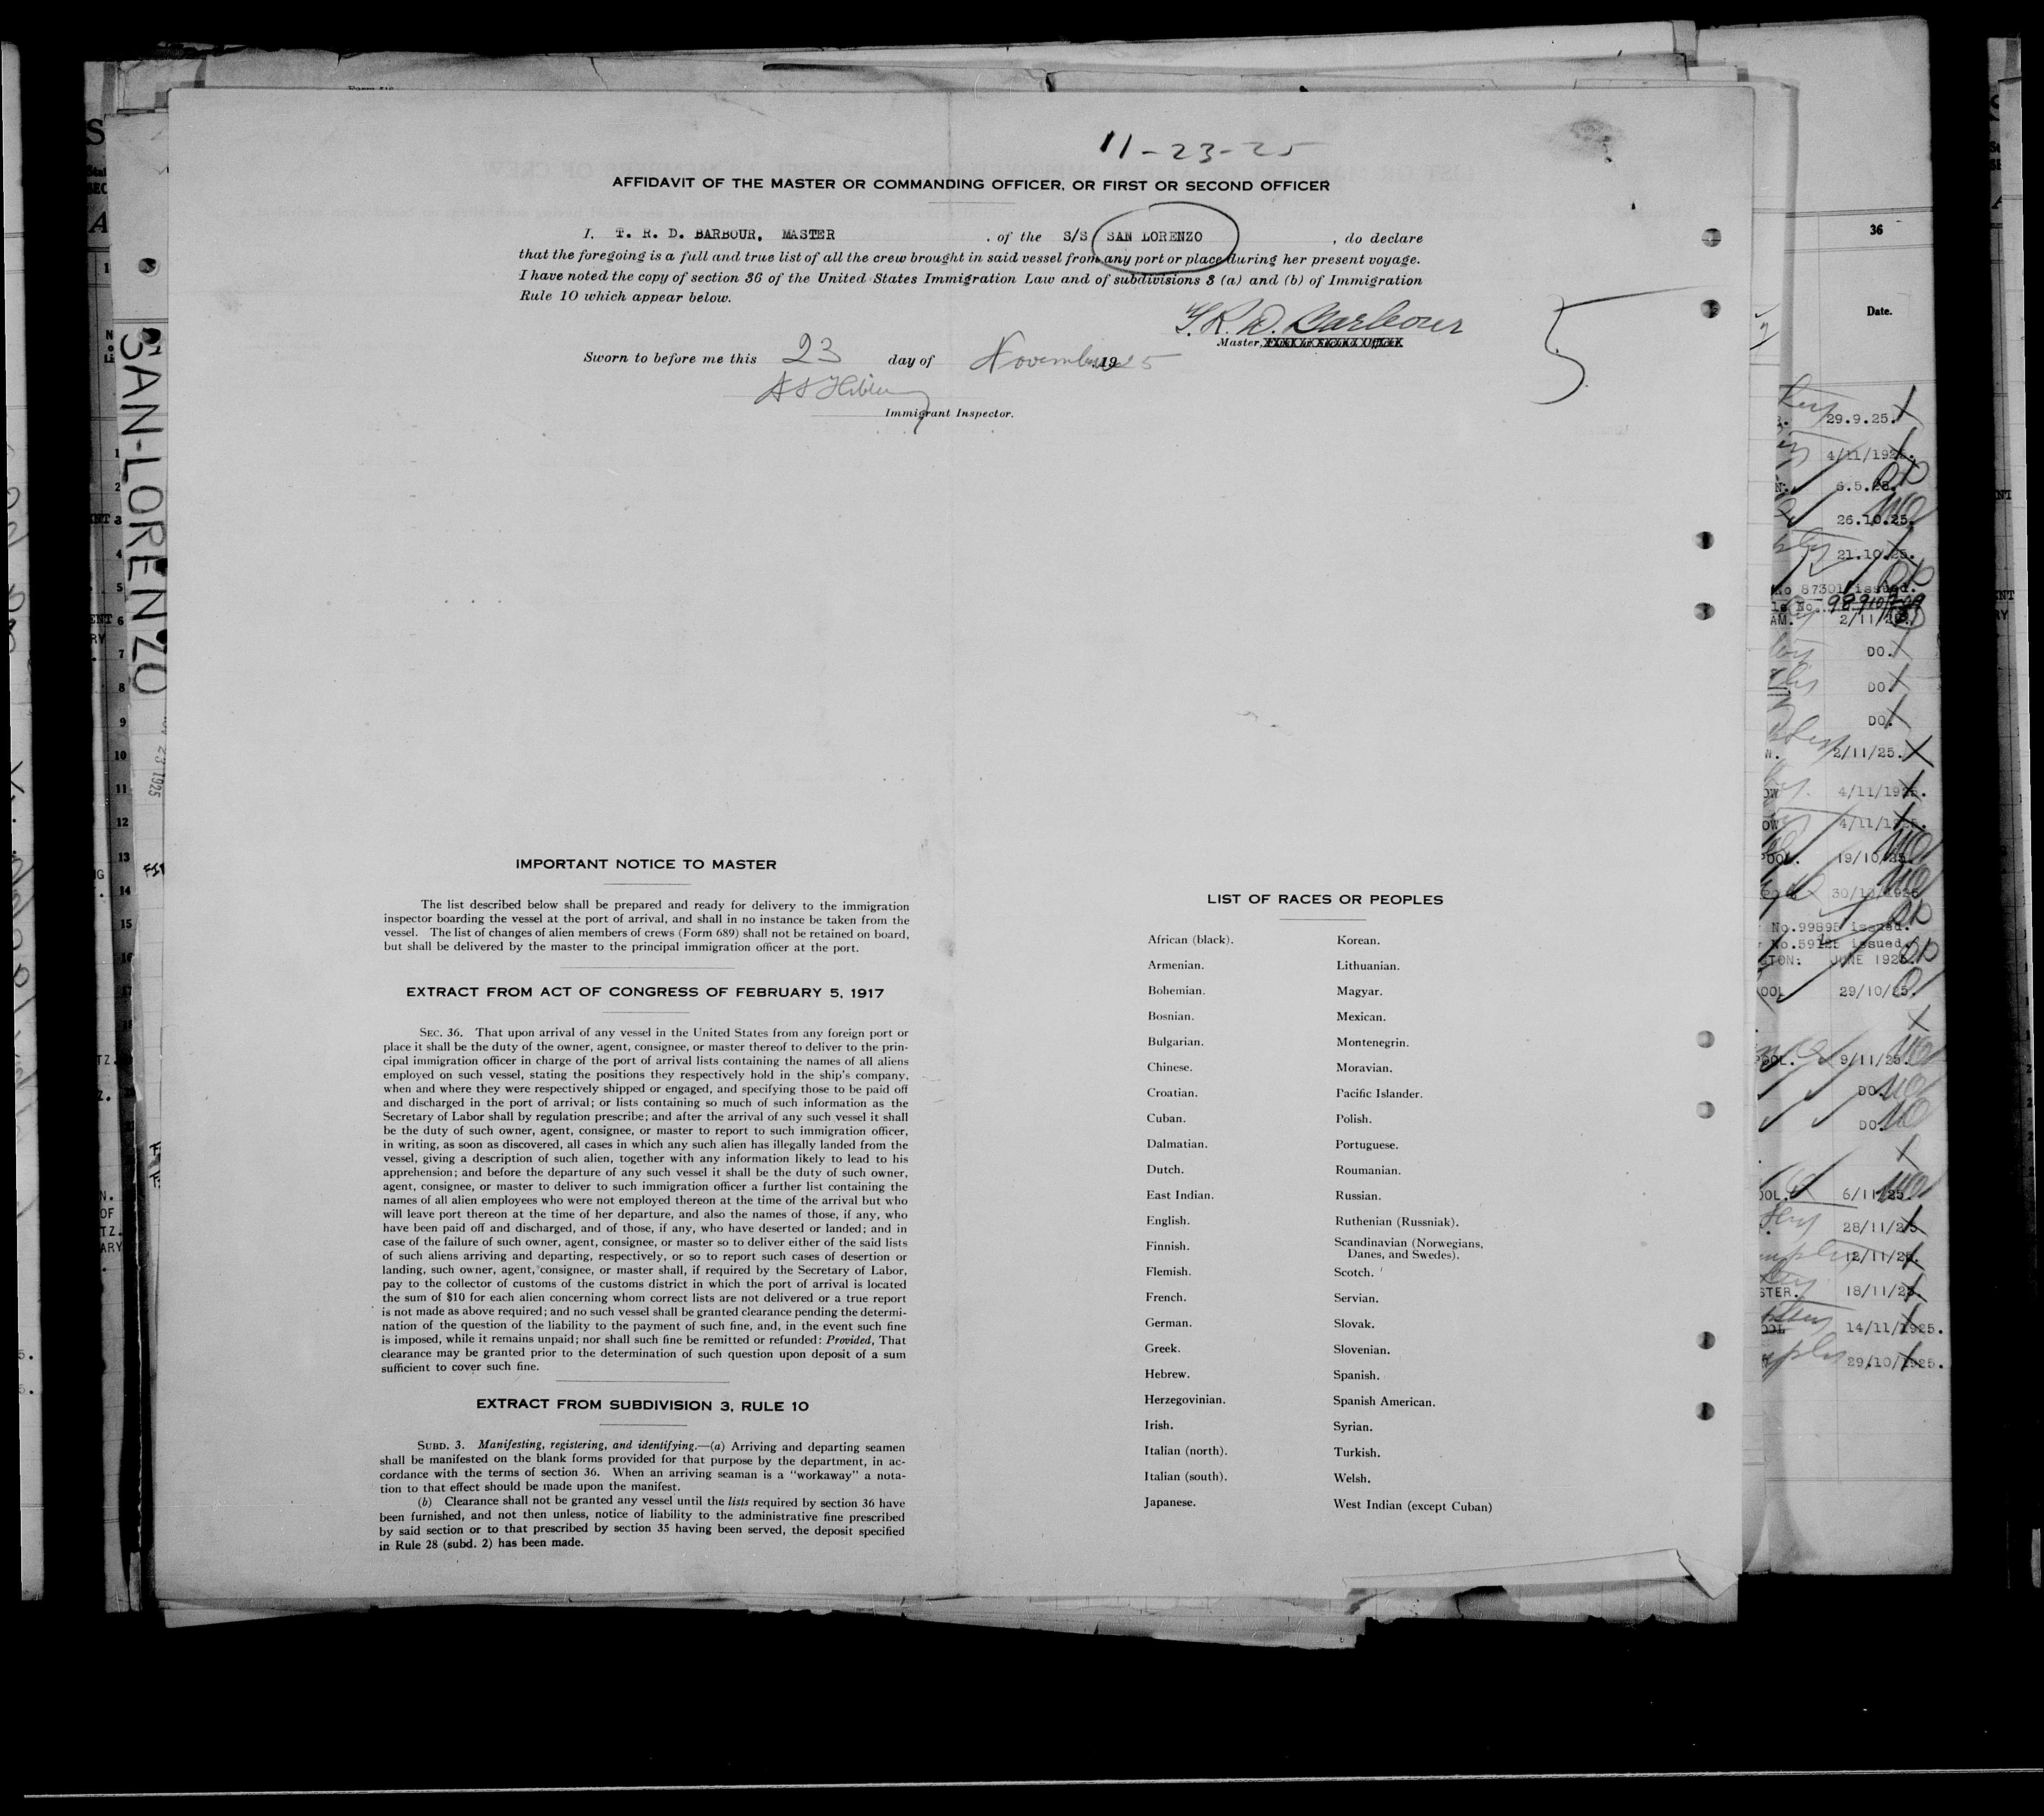 11-23-25
AFFIDAVIT OF THE MASTER OR COMMANDING OFFICER, OR FIRST OR SECOND OFFICER
I, T. R. D. BARBOUR, MASTER , of the S/S SAN LORENZO , do declare
that the foregoing is a full and true list of all the crew brought in said vessel from any port or place during her present voyage.
I have noted the copy of section 36 of the United States Immigration Law and of subdivisions 3 (a) and (b) of Immigration
Rule 10 which appear below.
T. R. D. Barbour
Master,
5
Sworn to before me this 23 day of November, 1925
Immigrant Inspector.
IMPORTANT NOTICE TO MASTER
The list described below shall be prepared and ready for delivery to the immigration
inspector boarding the vessel at the port of arrival, and shall in no instance be taken from the
vessel. The list of changes of alien members of crews (Form 689) shall not be retained on board,
but shall be delivered by the master to the principal immigration officer at the port.
EXTRACT FROM ACT OF CONGRESS OF FEBRUARY 5, 1917
SEC. 36. That upon arrival of any vessel in the United States from any foreign port or
place it shall be the duty of the owner, agent, consignee, or master thereof to deliver to the prin-
cipal immigration officer in charge of the port of arrival lists containing the names of all aliens
employed on such vessel, stating the positions they respectively hold in the ship's company,
when and where they were respectively shipped or engaged, and specifying those to be paid off
and discharged in the port of arrival; or lists containing so much of such information as the
Secretary of Labor shall by regulation prescribe; and after the arrival of any such vessel it shall
be the duty of such owner, agent, consignee, or master to report to such immigration officer,
in writing, as soon as discovered, all cases in which any such alien has illegally landed from the
vessel, giving a description of such alien, together with any information likely to lead to his
apprehension; and before the departure of any such vessel it shall be the duty of such owner,
agent, consignee, or master to deliver to such immigration officer a further list containing the
names of all alien employees who were not employed thereon at the time of the arrival but who
will leave port thereon at the time of her departure, and also the names of those, if any, who
have been paid off and discharged, and of those, if any, who have deserted or landed; and in
case of the failure of such owner, agent, consignee, or master so to deliver either of the said lists
of such aliens arriving and departing, respectively, or so to report such cases of desertion or
landing, such owner, agent, consignee, or master shall, if required by the Secretary of Labor,
pay to the collector of customs of the customs district in which the port of arrival is located
the sum of $10 for each alien concerning whom correct lists are not delivered or a true report
is not made as above required; and no such vessel shall be granted clearance pending the determi-
nation of the question of the liability to the payment of such fine, and, in the event such fine
is imposed, while it remains unpaid; nor shall such fine be remitted or refunded: Provided, That
clearance may be granted prior to the determination of such question upon deposit of a sum
sufficient to cover such fine.
EXTRACT FROM SUBDIVISION 3, RULE 10
SUBD. 3. Manifesting, registering, and identifying.—(a) Arriving and departing seamen
shall be manifested on the blank forms provided for that purpose by the department, in ac-
cordance with the terms of section 36. When an arriving seaman is a "workaway" a nota-
tion to that effect should be made upon the manifest.
(b) Clearance shall not be granted any vessel until the lists required by section 36 have
been furnished, and not then unless, notice of liability to the administrative fine prescribed
by said section or to that prescribed by section 35 having been served, the deposit specified
in Rule 28 (subd. 2) has been made.
LIST OF RACES OR PEOPLES
African (black). Korean.
Armenian. Lithuanian.
Bohemian. Magyar.
Bosnian. Mexican.
Bulgarian. Montenegrin.
Chinese. Moravian.
Croatian. Pacific Islander.
Cuban. Polish.
Dalmatian. Portuguese.
Dutch. Roumanian.
East Indian. Russian.
English. Ruthenian (Russniak).
Finnish. Scandinavian (Norwegians,
Danes, and Swedes).
Flemish. Scotch.
French. Servian.
German. Slovak.
Greek. Slovenian.
Hebrew. Spanish.
Herzegovinian. Spanish American.
Irish. Syrian.
Italian (north). Turkish.
Italian (south). Welsh.
Japanese. West Indian (except Cuban)
SAN-LORENZO
23 1925
1
2
3
4
5
6
7
8
9
10
11
12
13
14
15
16
36
Date.
29.9.25.
4/11/1925.
6.5.25.
26.10.25.
21.10.25.
No 87301 issued.
2/11/25.
DO.
DO.
DO.
2/11/25.
4/11/1925.
4/11/1925.
19/10/25.
30/10/1925
No.99895 issued.
No.59125 issued.
JUNE 1925.
29/10/25.
9/11/25.
DO.
DO.
6/11/25.
28/11/25
12/11/25.
18/11/25.
14/11/1925.
29/10/1925.